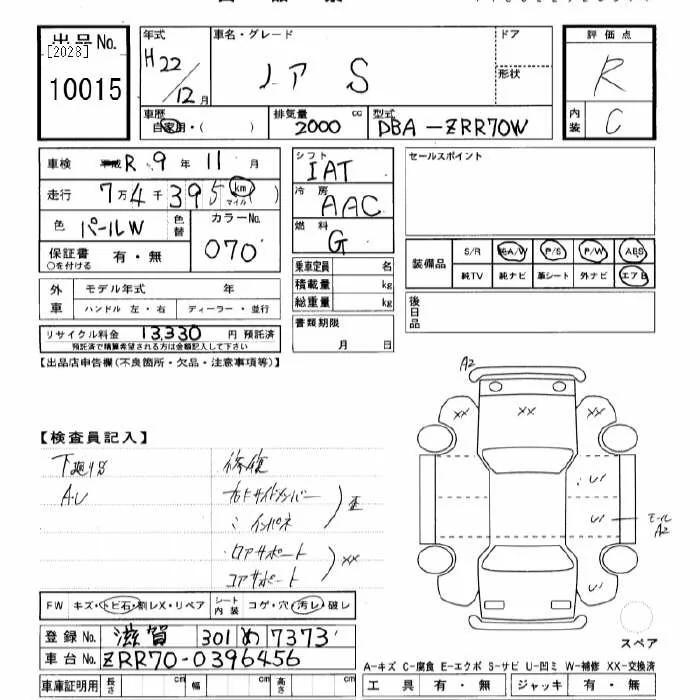 出品No.
[2028]
10015
年式
H22/12月
車名・グレード
ノア S
ドア
形状
評価点
R
内装
C
車歴
自家用・( )
排気量
2000 cc
型式
DBA-ZRR70W
車検
R 9年 11月
走行
7万4千395 km
マイル
( )
色
パールW
色替
カラーNo.
070
保証書
○を付ける
有・無
外車
モデル年式 年
ハンドル 左・右
ディーラー・並行
リサイクル料金 13,330 円 預託済
預託済で精算希望される方は金額記入して下さい
シフト
IAT
冷房
AAC
燃料
G
乗車定員 名
積載量 kg
総重量 kg
書類期限
月 日
セールスポイント
装備品
S/R 純A/W P/S P/W ABS
純TV 純ナビ 革シート 外ナビ エアB
後日品
【出品店申告欄(不良箇所・欠品・注意事項等)】
【検査員記入】
下廻りS
A・U
修復
右ドサイドメンバー
〃 インパネ
歪
ロアサポート
コアサポート
XX
A2
XX
XX
XX
U
U
U
モール
A2
スペア
FW キズ・トビ石・割レX・リペア
シート内装 コゲ・穴・汚レ・破レ
登録No. 滋賀 301 め 7373
車台No. ZRR70-0396456
車庫証明用 長さ cm 幅 cm 高さ cm
A-キズ C-腐食 E-エクボ S-サビ U-凹ミ W-補修 XX-交換済
工具 有・無 ジャッキ 有・無